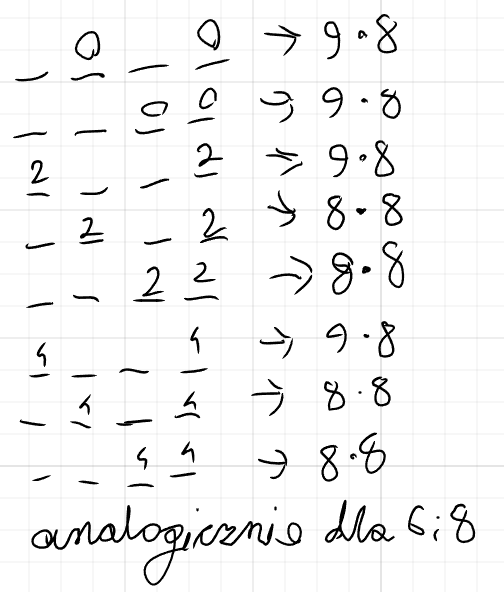 _ 0 _ 0 → 9·8
_ _ 0 0 → 9·8
2 _ _ 2 → 9·8
_ 2 _ 2 → 8·8
_ _ 2 2 → 8·8
4 _ _ 4 → 9·8
_ 4 _ 4 → 8·8
_ _ 4 4 → 8·8
analogicznie dla 6 i 8